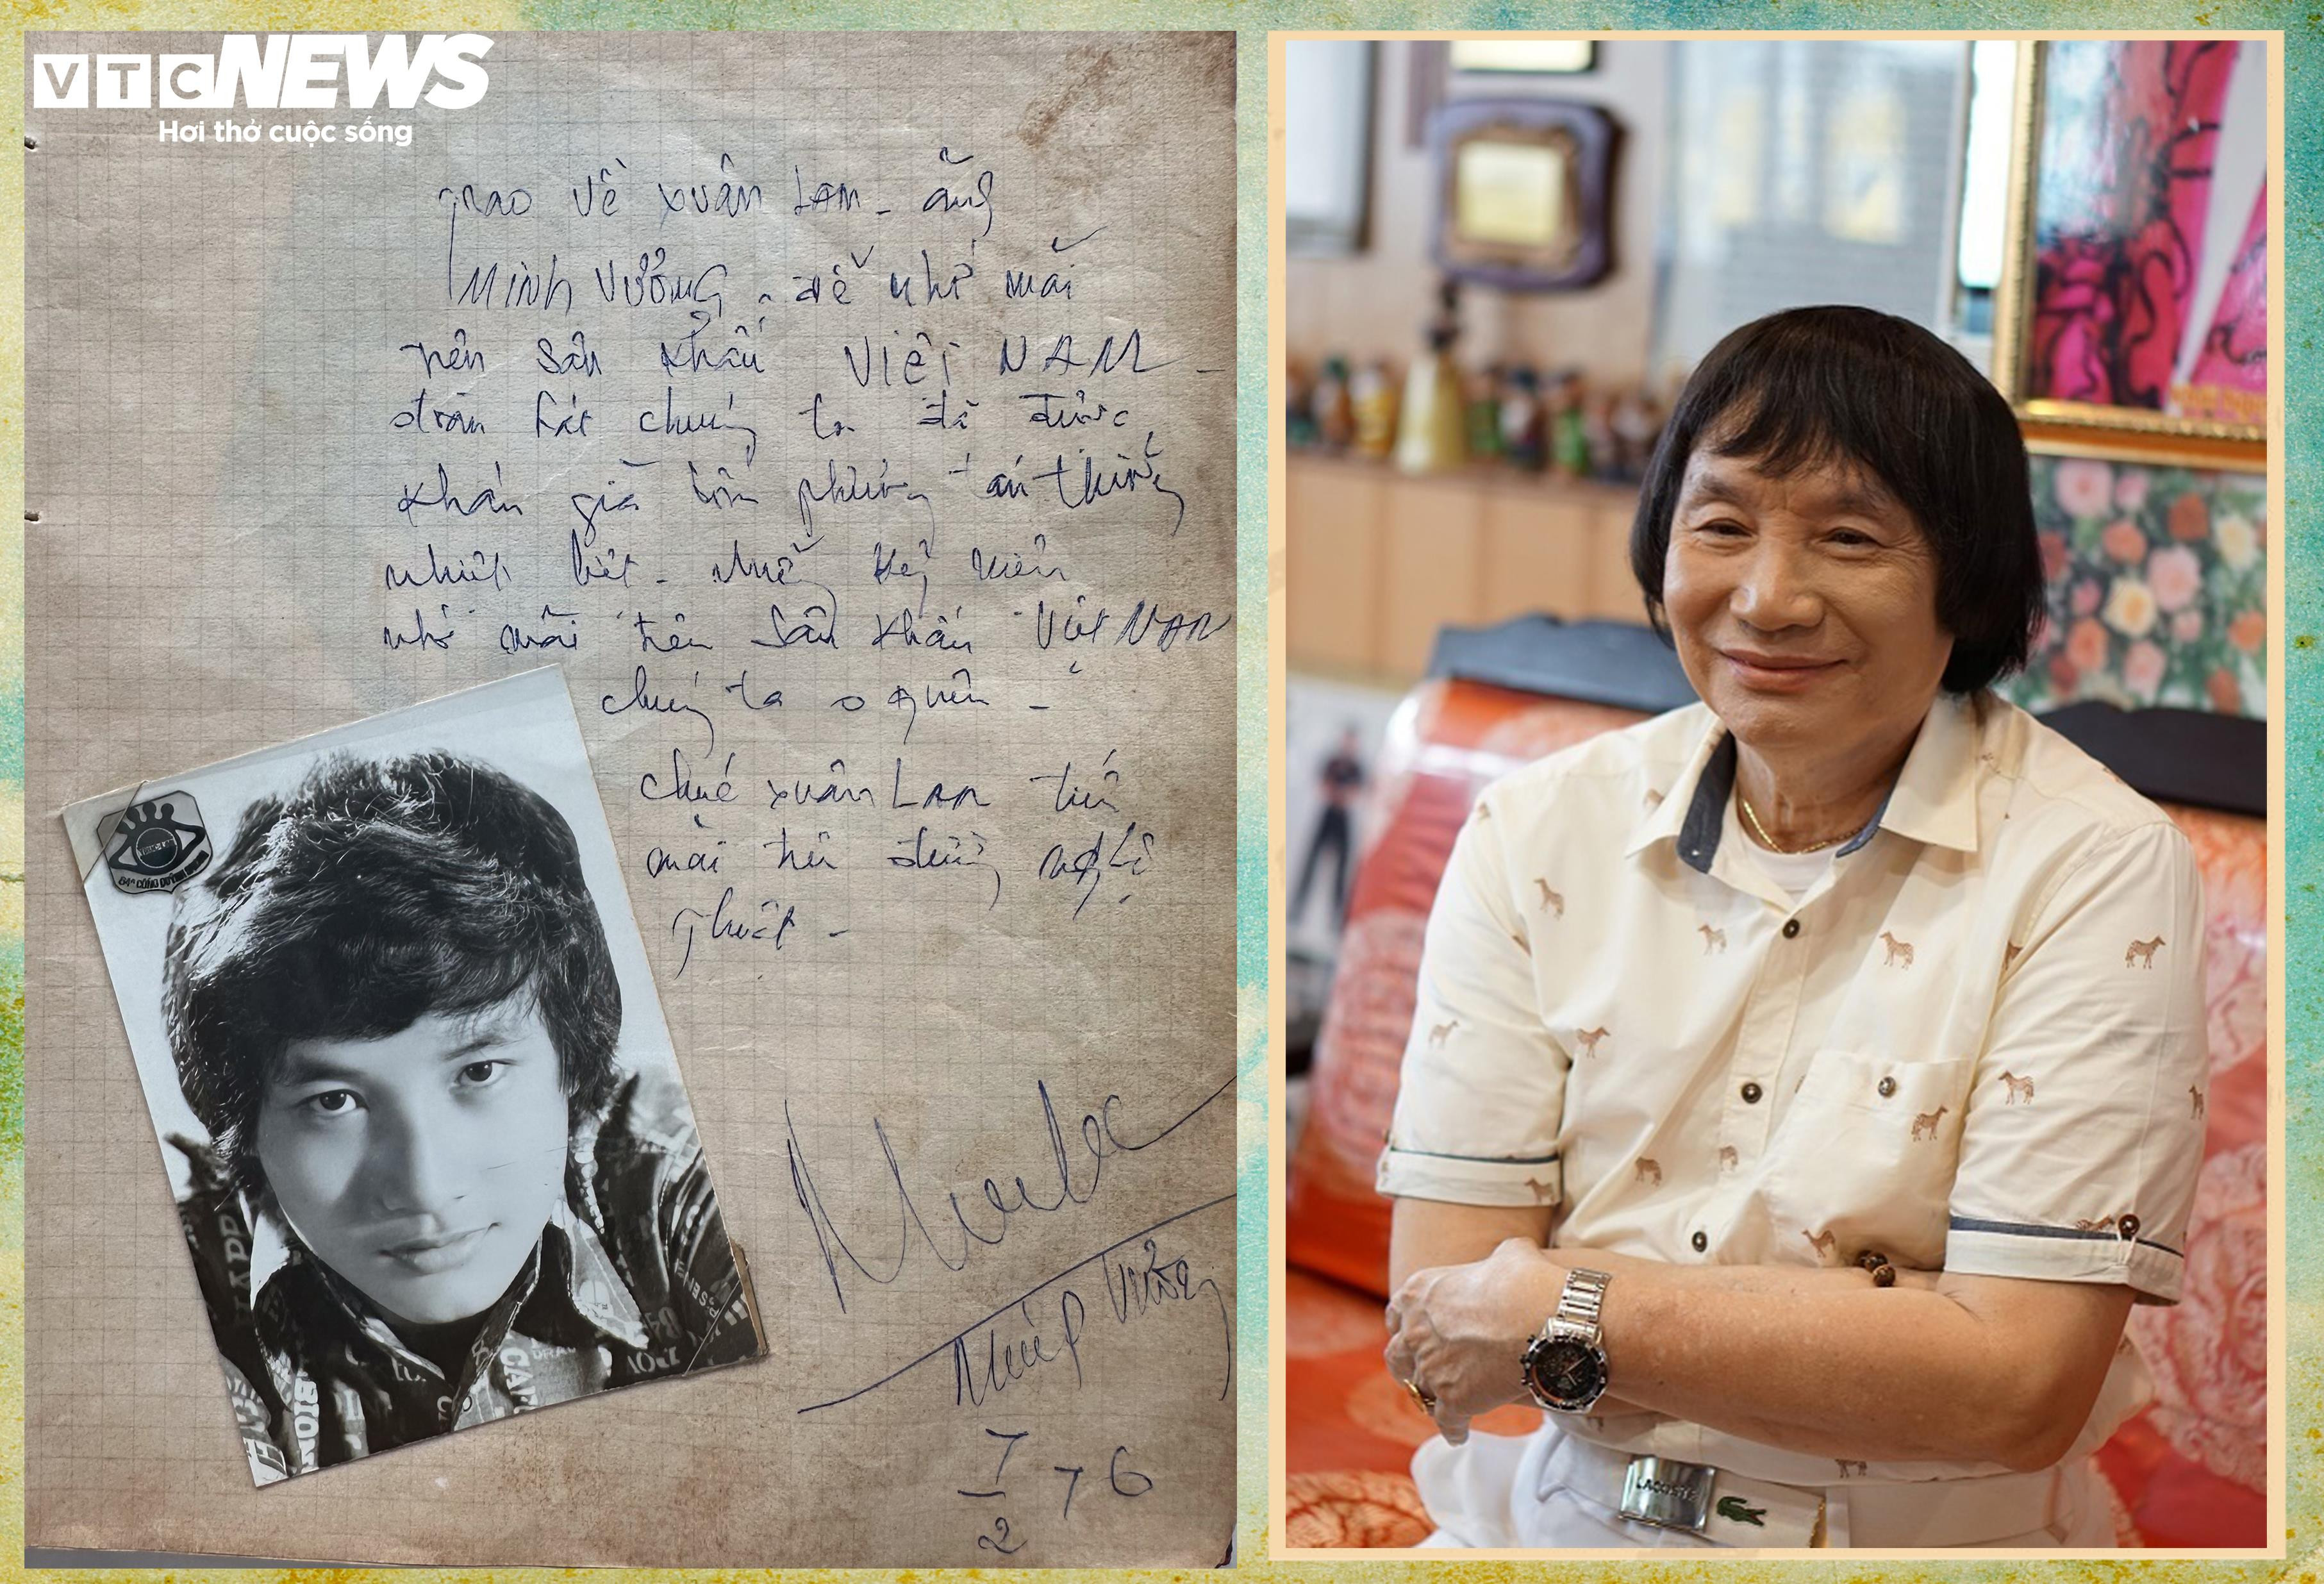 VTC NEWS
Hơi thở cuộc sống
Trao về Xuân LAN - ảnh
MINH VƯƠNG - để nhớ mãi
trên sân khấu VIỆT NAM -
đoàn hát chúng ta đã được
khán giả bốn phương tán thưởng
nhiệt liệt - những kỷ niệm
nhớ mãi trên sân khấu Việt NAM
chúng ta o quên -
chúc Xuân LAN tiến
mãi trên đường nghệ
thuật -
Minh Vương
7/2 76
TRÚC-LAM
LACOSTE